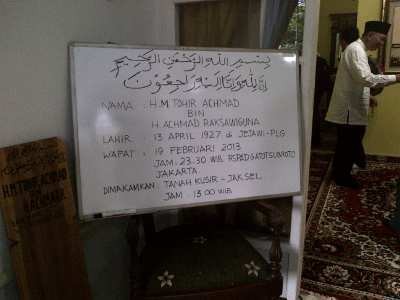 بسم الله الرحمن الرحيم
إنا لله وإنا إليه راجعون
NAMA : H.M TOHIR ACHMAD
BIN
H. ACHMAD RAKSAWIGUNA
LAHIR : 13 APRIL 1927 di JEJAWI-PLG
WAFAT : 19 FEBRUARI 2013
JAM : 23.30 WIB, RSPAD GATOT SUBROTO
JAKARTA
DIMAKAMKAN : TANAH KUSIR - JAK SEL
JAM : 13.00 WIB
H.M TOHIR ACHMAD